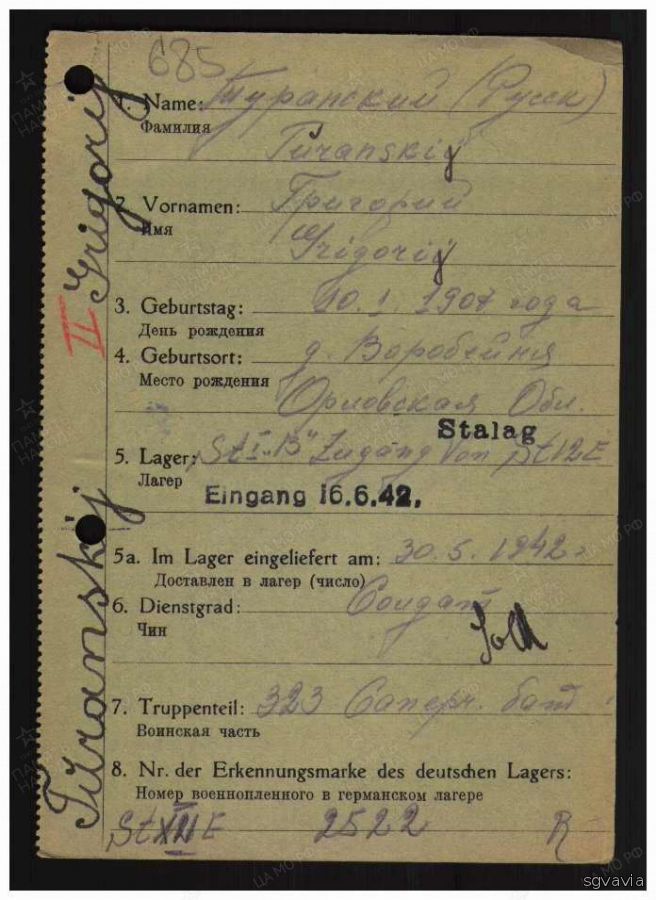 685
1. Name: Туранский (Русск)
Фамилия
Turanskij
2. Vornamen: Григорий
Имя
Grigorij
3. Geburtstag: 10. I. 1907 года
День рождения
4. Geburtsort: д. Воробейня
Место рождения
Орловская Обл.
Stalag
5. Lager: St I "B" Zugang von St 12 E
Лагерь
Eingang 16.6.42.
5a. Im Lager eingeliefert am: 30. 5. 1942 г
Доставлен в лагерь (число)
6. Dienstgrad: Солдат
Чин
Sold
7. Truppenteil: 323 Саперн. бат
Воинская часть
8. Nr. der Erkennungsmarke des deutschen Lagers:
Номер военнопленного в германском лагере
St XII E 2522 R
Turanskij. Grigorij
II
sgvavia